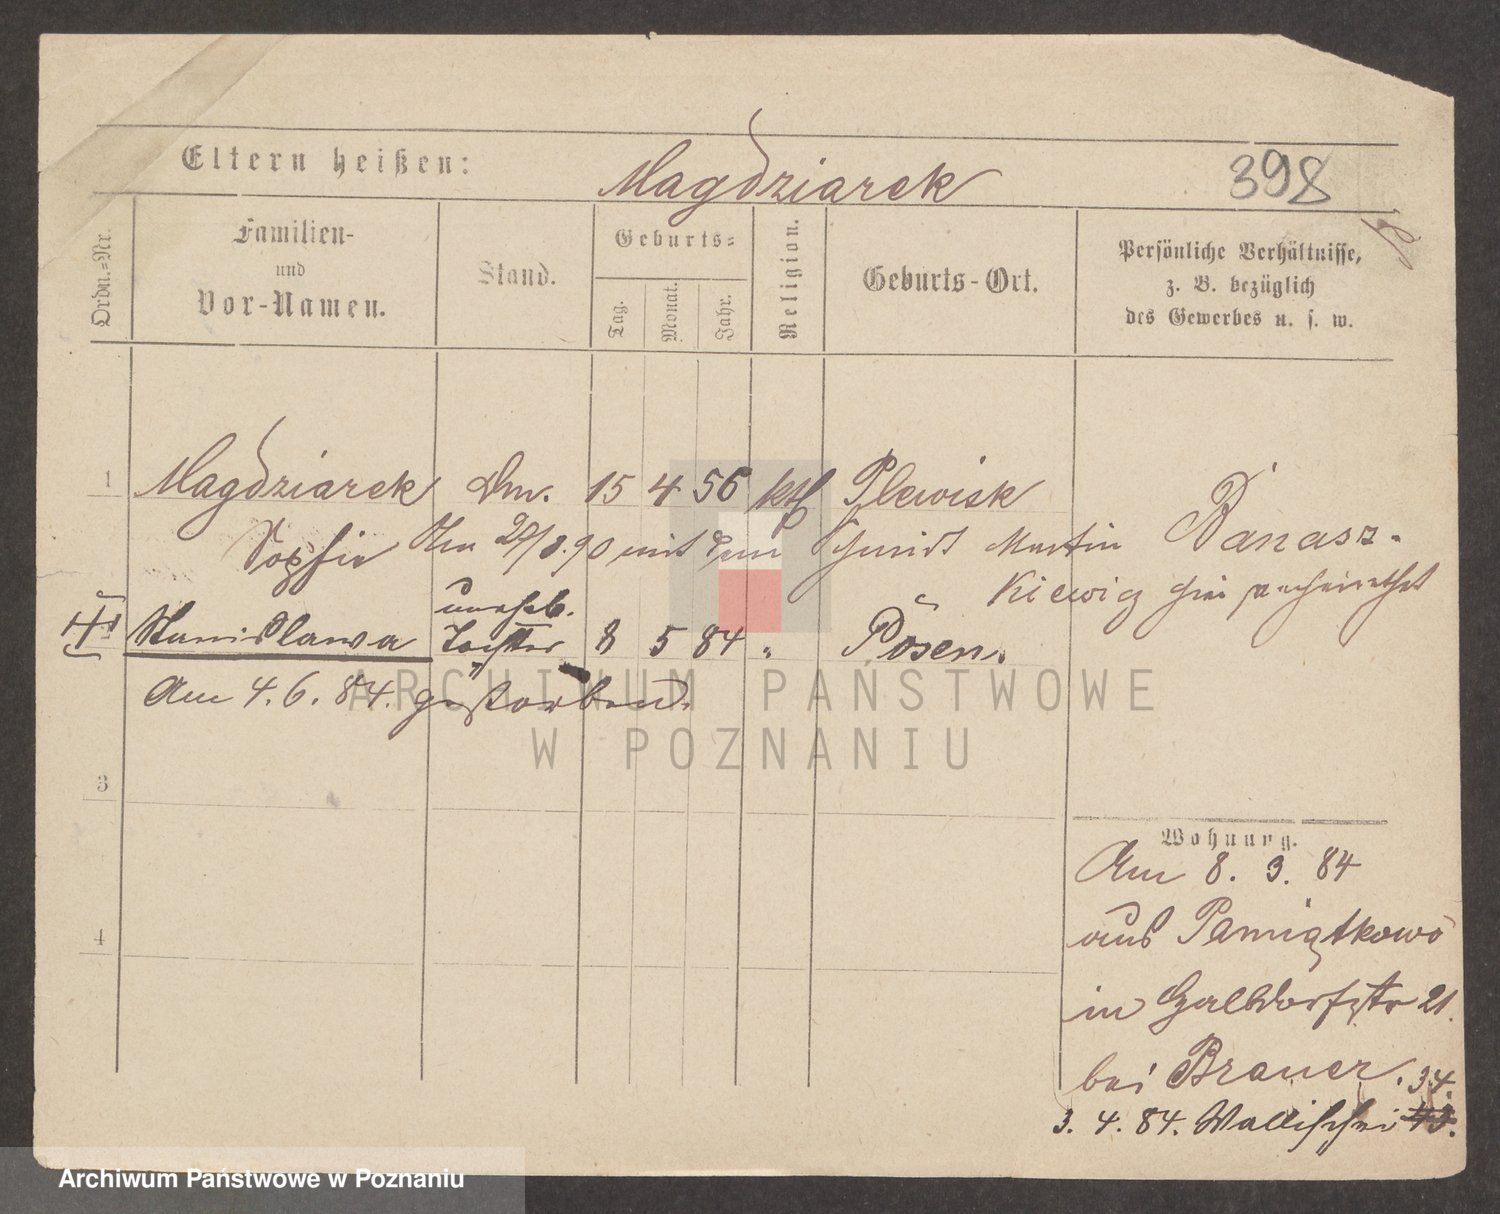 Eltern heißen: Magdziarek 398
Ordn.-Nr.
Familien-
und
Vor-Namen.
Stand.
Geburts-
Tag.
Monat.
Jahr.
Religion.
Geburts-Ort.
Persönliche Verhältnisse,
z. B. bezüglich
des Gewerbes u. s. w.
1 Magdziarek 15 4 56 kth Plewisk
Sophie mit dem Schmidt Martin Banasz-
kiewicz hier verheirathet
unehel.
Stanislawa Tochter 8 5 84 " Posen.
Am 4. 6. 84. gestorben.
3
4
Wohnung.
Am 8. 3. 84
aus Pamiątkowo
in Halbdorfstr 21.
bei Brauer. 34.
3. 4. 84. Wallischei 43.
ARCHIWUM PAŃSTWOWE
W POZNANIU
Archiwum Państwowe w Poznaniu